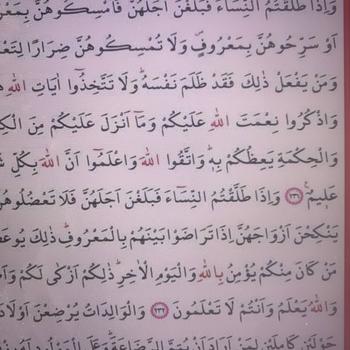 وَاِذَا طَلَّقْتُمُ النِّسَٓاءَ فَبَلَغْنَ اَجَلَهُنَّ فَاَمْسِكُوهُنَّ
اَوْ سَرِّحُوهُنَّ بِمَعْرُوفٍۖ وَلَا تُمْسِكُوهُنَّ ضِرَارًا
وَمَنْ يَفْعَلْ ذٰلِكَ فَقَدْ ظَلَمَ نَفْسَهُۜ وَلَا تَتَّخِذُٓوا اٰيَاتِ اللّٰهِ
وَاذْكُرُوا نِعْمَتَ اللّٰهِ عَلَيْكُمْ وَمَٓا اَنْزَلَ عَلَيْكُمْ مِنَ
وَالْحِكْمَةِ يَعِظُكُمْ بِهِۜ وَاتَّقُوا اللّٰهَ وَاعْلَمُٓوا اَنَّ اللّٰهَ بِكُلِّ
عَلِيمٌ۟ ﴿٢٣١﴾ وَاِذَا طَلَّقْتُمُ النِّسَٓاءَ فَبَلَغْنَ اَجَلَهُنَّ فَلَا تَعْضُلُوهُنَّ
يَنْكِحْنَ اَزْوَاجَهُنَّ اِذَا تَرَاضَوْا بَيْنَهُمْ بِالْمَعْرُوفِۜ ذٰلِكَ
مَنْ كَانَ مِنْكُمْ يُؤْمِنُ بِاللّٰهِ وَالْيَوْمِ الْاٰخِرِۜ ذٰلِكُمْ اَزْكٰى لَكُمْ
وَاللّٰهُ يَعْلَمُ وَاَنْتُمْ لَا تَعْلَمُونَ ﴿٢٣٢﴾ وَالْوَالِدَاتُ يُرْضِعْنَ